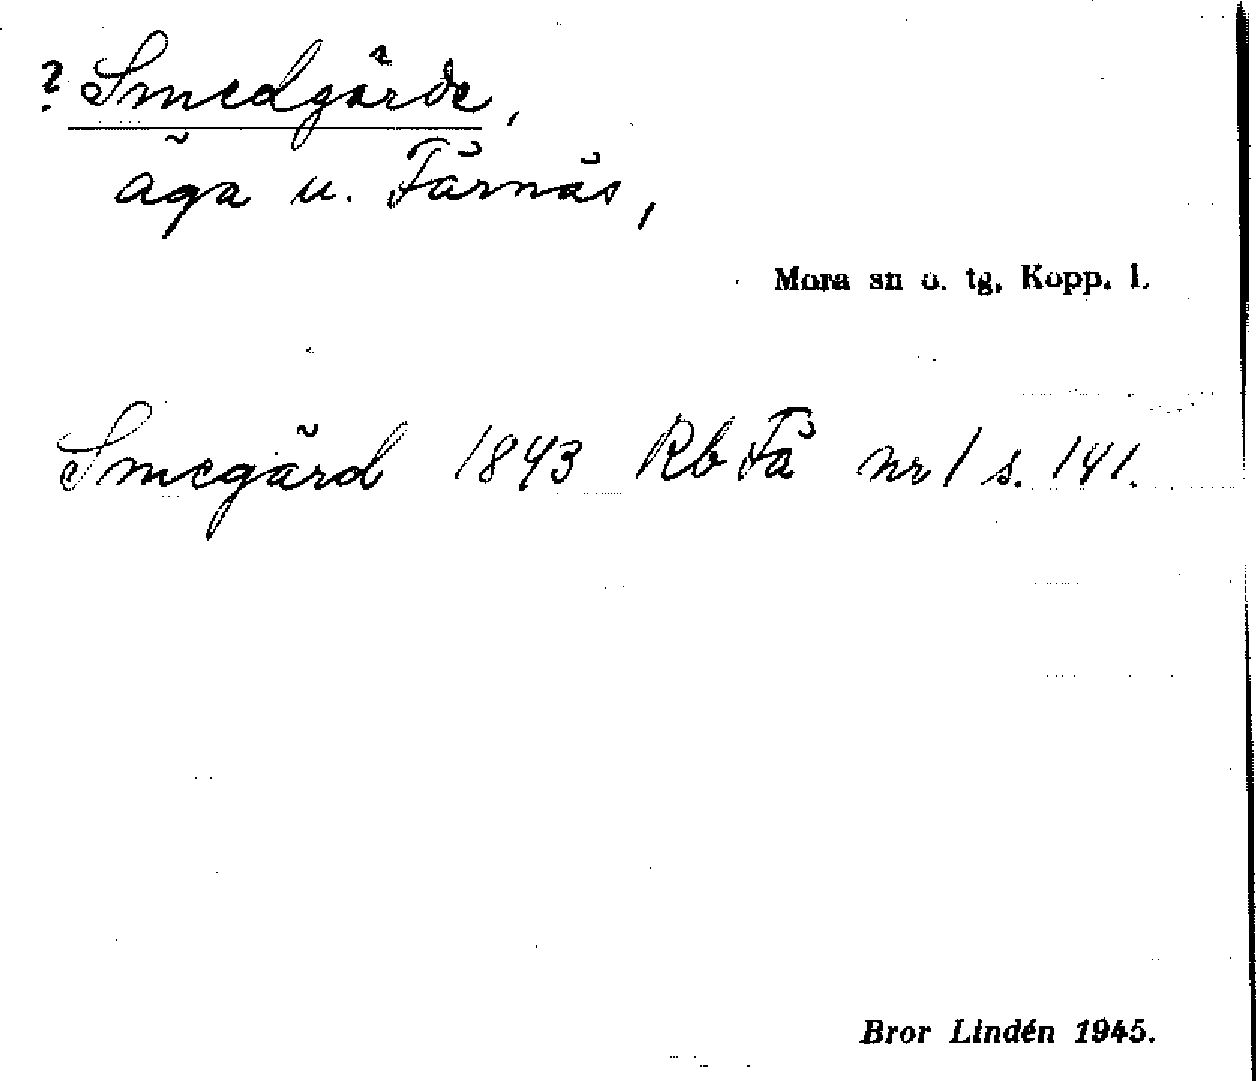 ? Smedgärde,
äga u. Färnäs,
Mora sn o. tg, Kopp. l.
Smegärd 1843 Rb Fä nr 1 s. 141.
Bror Lindén 1945.